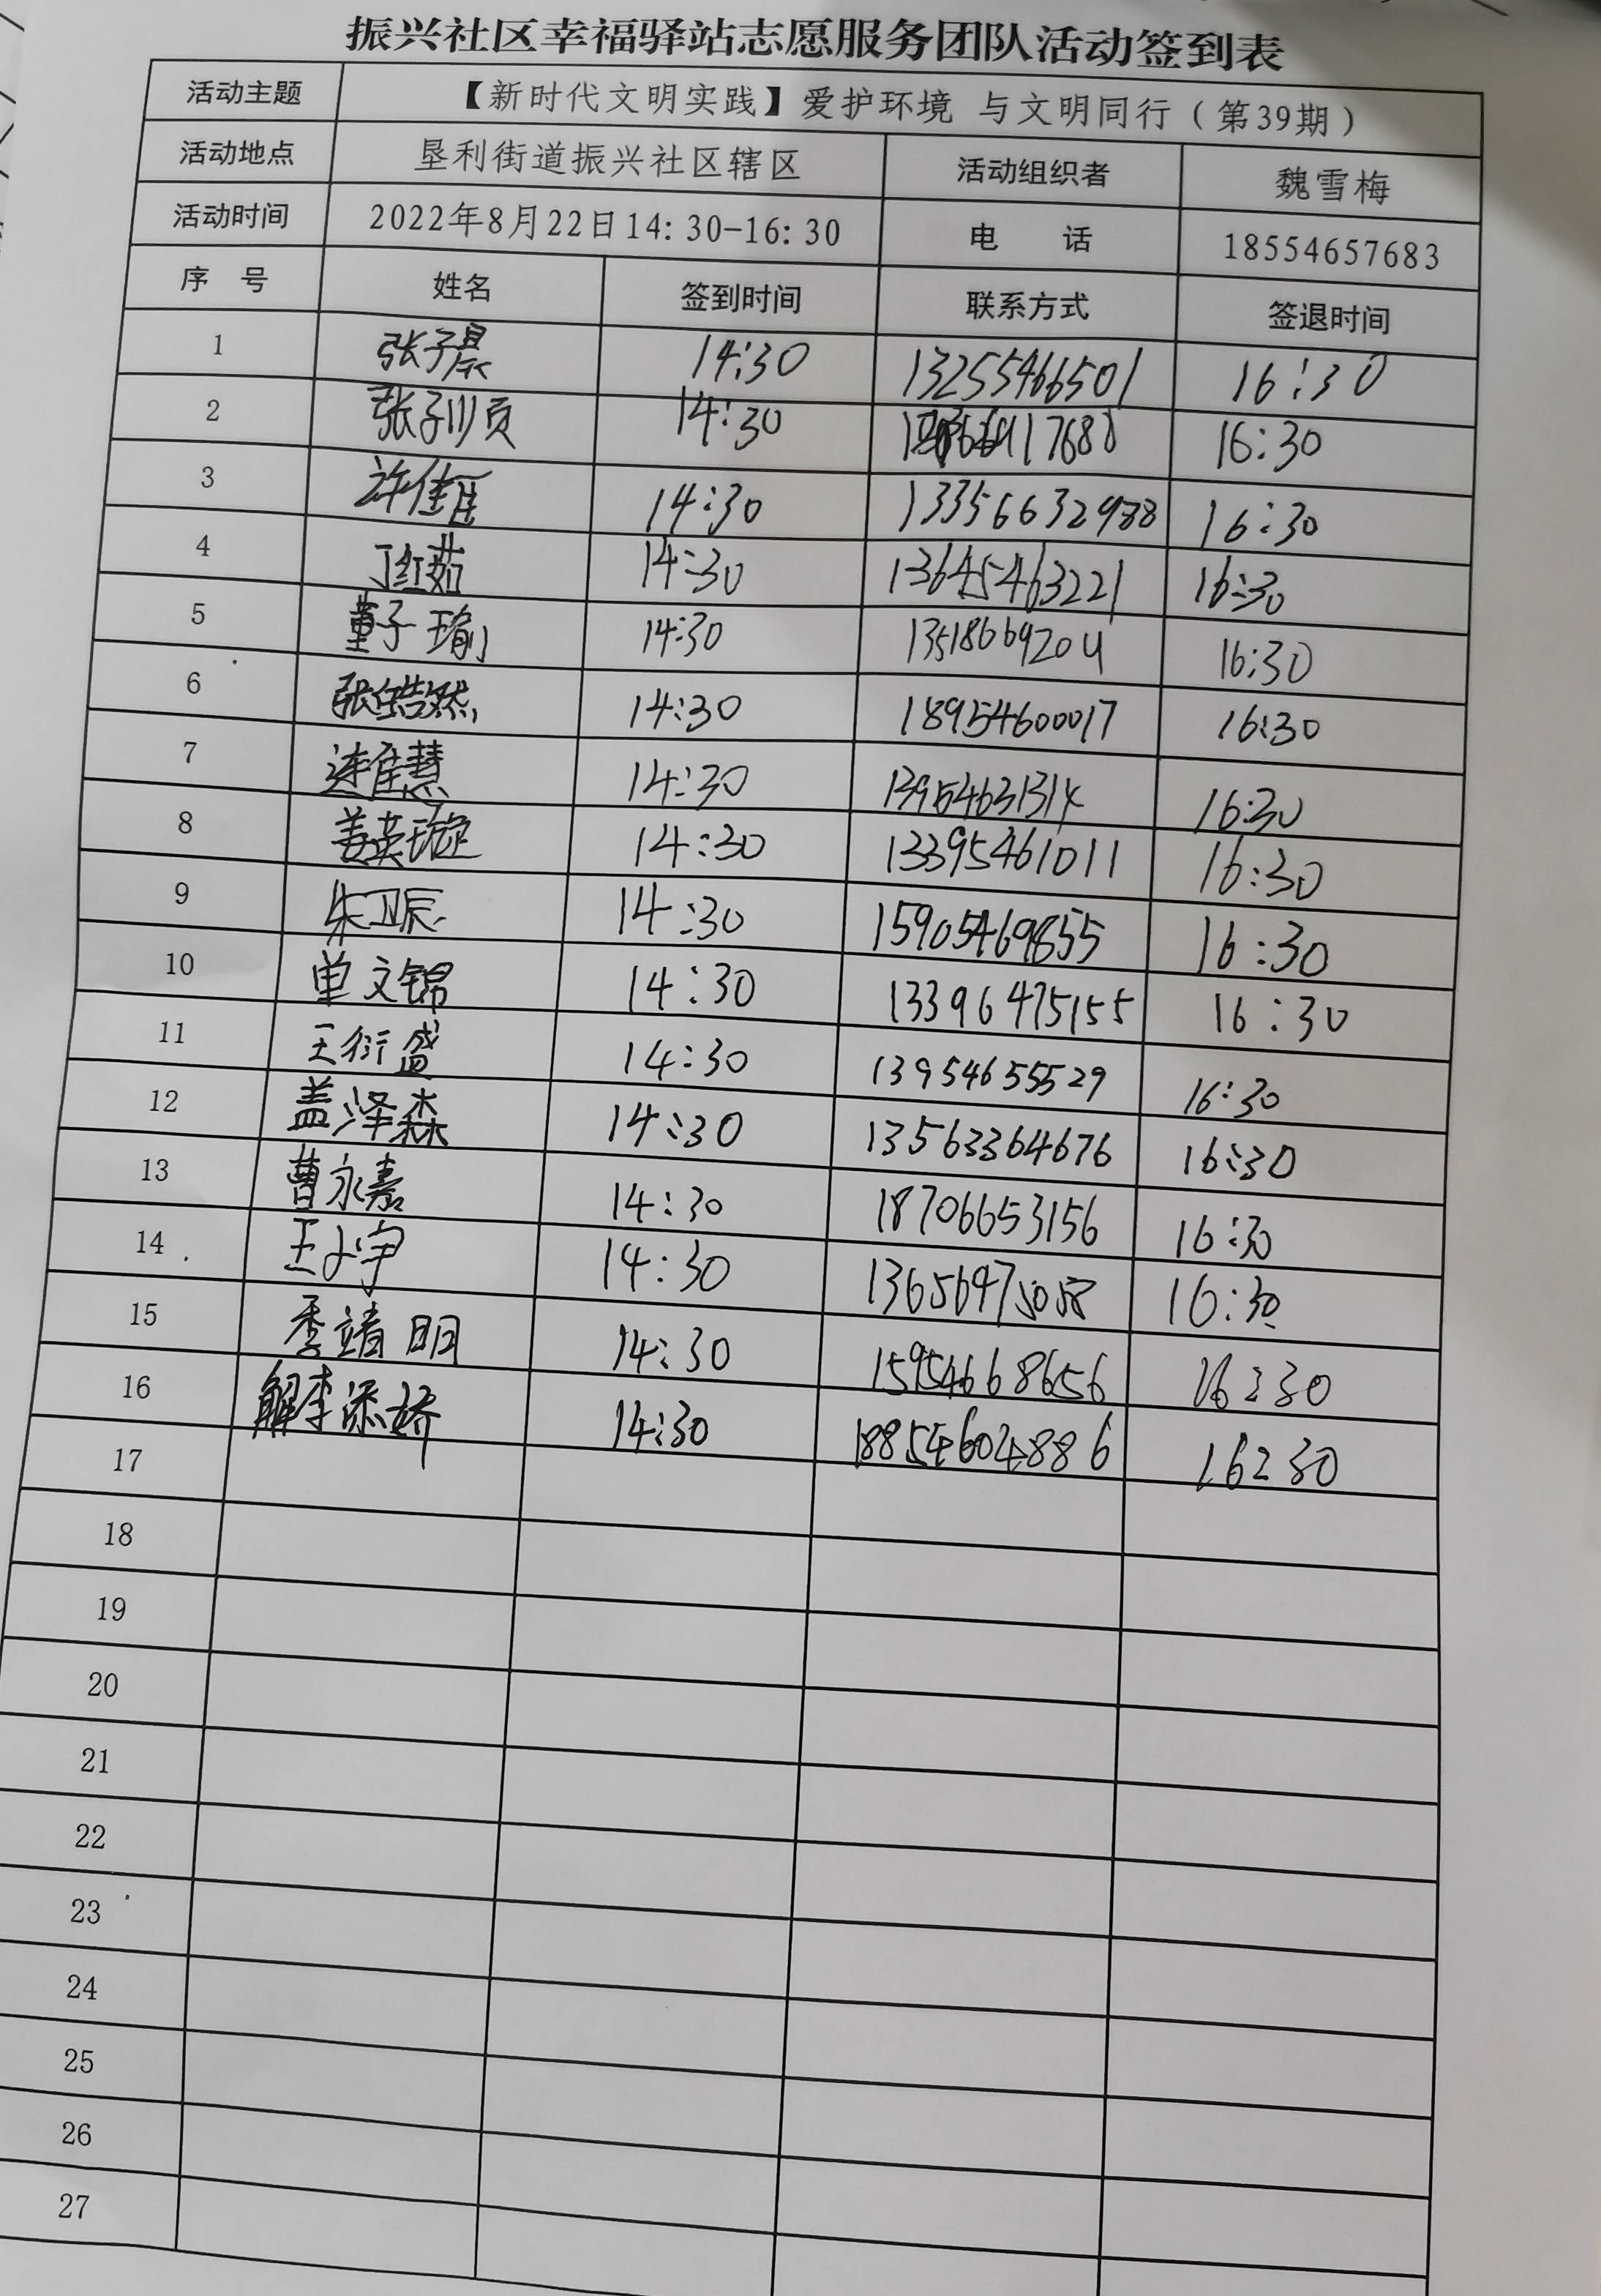 振兴社区幸福驿站志愿服务团队活动签到表
活动主题 【新时代文明实践】爱护环境 与文明同行（第39期）
活动地点 垦利街道振兴社区辖区 活动组织者 魏雪梅
活动时间 2022年8月22日14:30-16:30 电 话 18554657683
序 号 姓名 签到时间 联系方式 签退时间
1 张子晨 14:30 13255466501 16:30
2 张子川页 14:30 16:30
3 许佳 14:30 13356632988 16:30
4 丁红茹 14:30 13645463221 16:30
5 董子瑜 14:30 13518669204 16:30
6 张皓然 14:30 18954600017 16:30
7 连佳慧 14:30 13954631314 16:30
8 姜英璇 14:30 13395461011 16:30
9 朱卫辰 14:30 15905469855 16:30
10 单文锦 14:30 13396475155 16:30
11 王衍盛 14:30 13954655529 16:30
12 盖泽森 14:30 13563364676 16:30
13 曹永嘉 14:30 18706653156 16:30
14 王子宇 14:30 16:30
15 季靖明 14:30 15954668656 16:30
16 解李添娇 14:30 18854604886 16:30
17
18
19
20
21
22
23
24
25
26
27